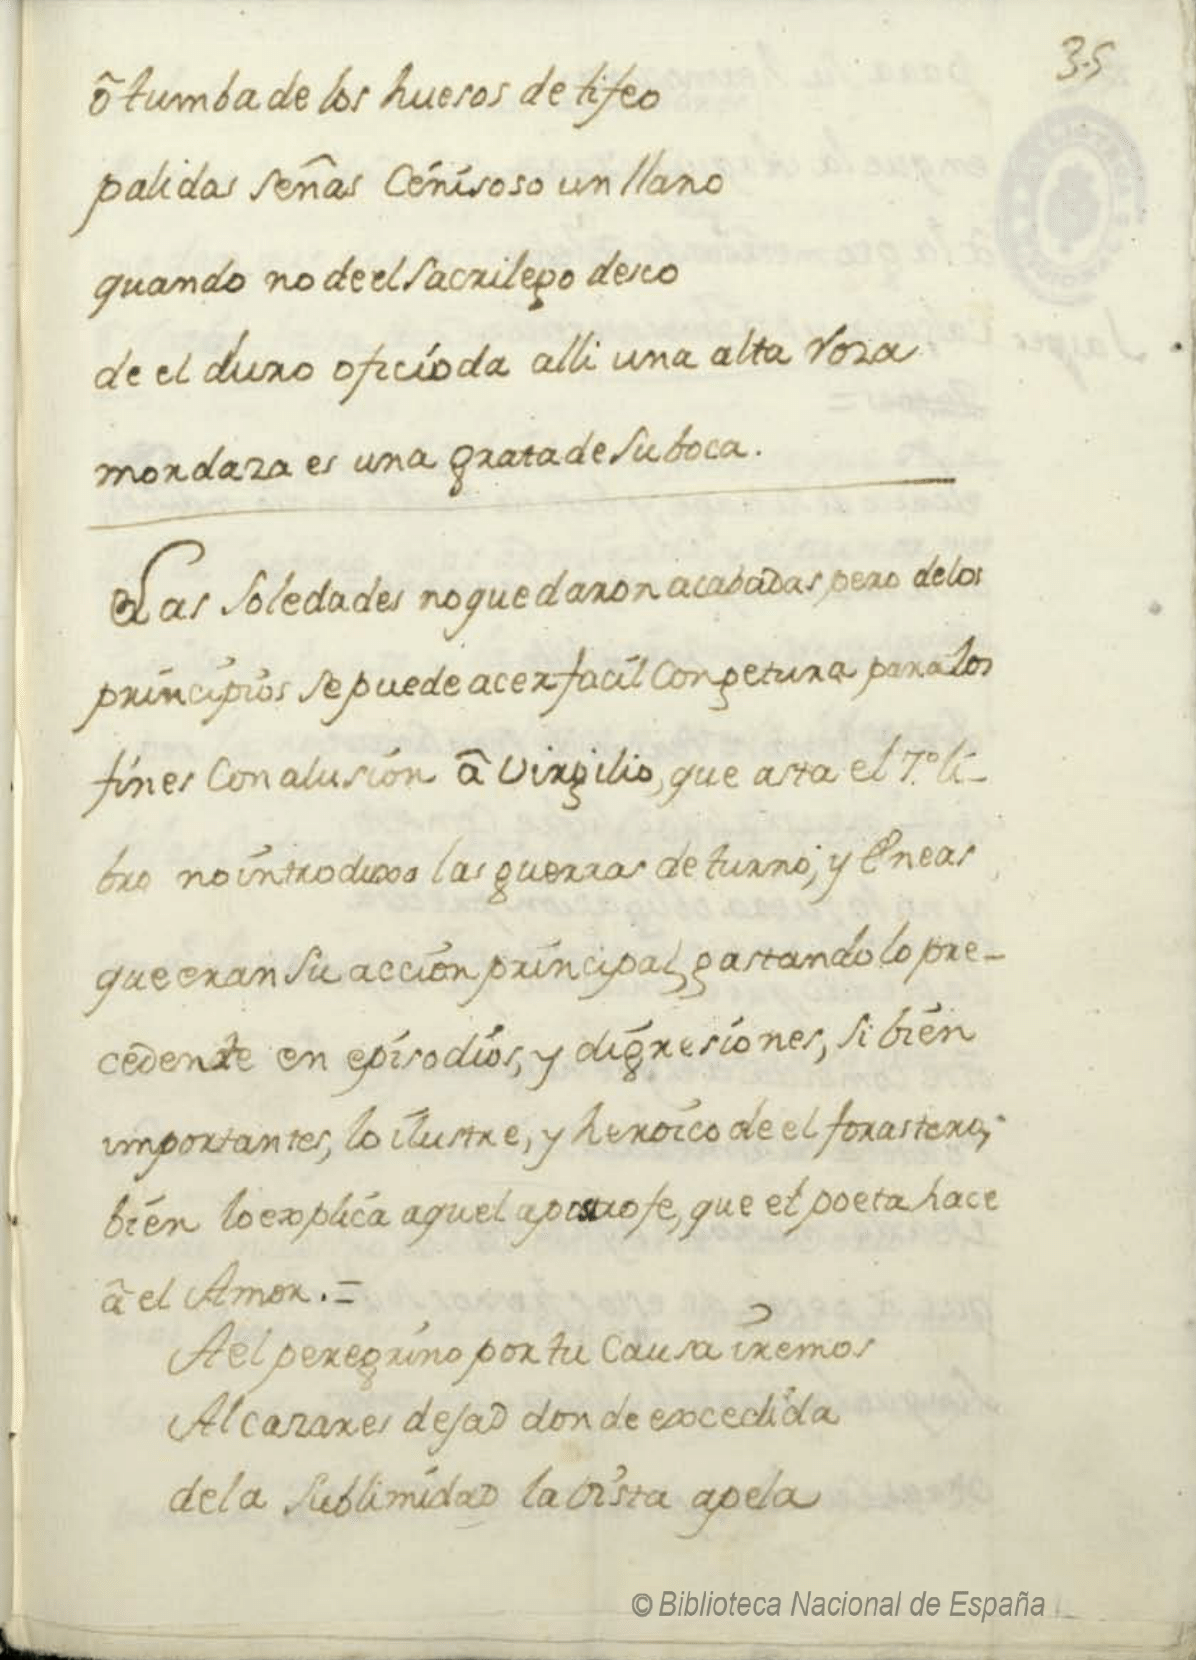 35
ô tumba de los huesos de tifeo
palidas señas Cenisoso un llano
quando no de el Sacrilego deseo
de el duro oficio da alli una alta Roza
mordaza es una grata de Su boca.
Las Soledades no quedaron acabadas, pero de los
principios Se puede acer facil Congetura para los
fines Con alusion â Virgilio, que asta el 7º li-
bro no introduxo las guerras de turno, y Eneas
que eran Su accion principal, gastando lo pre-
cedente en episodios, y digresiones, Si bien
importantes, lo ilustre, y heroico de el forastero,
bien lo explica aquel apostrofe, que el poeta hace
â el Amor. =
Ael peregrino por tu Causa iremos
Alcazares dejad donde excedida
de la Sublimidad la vista apela
© Biblioteca Nacional de España